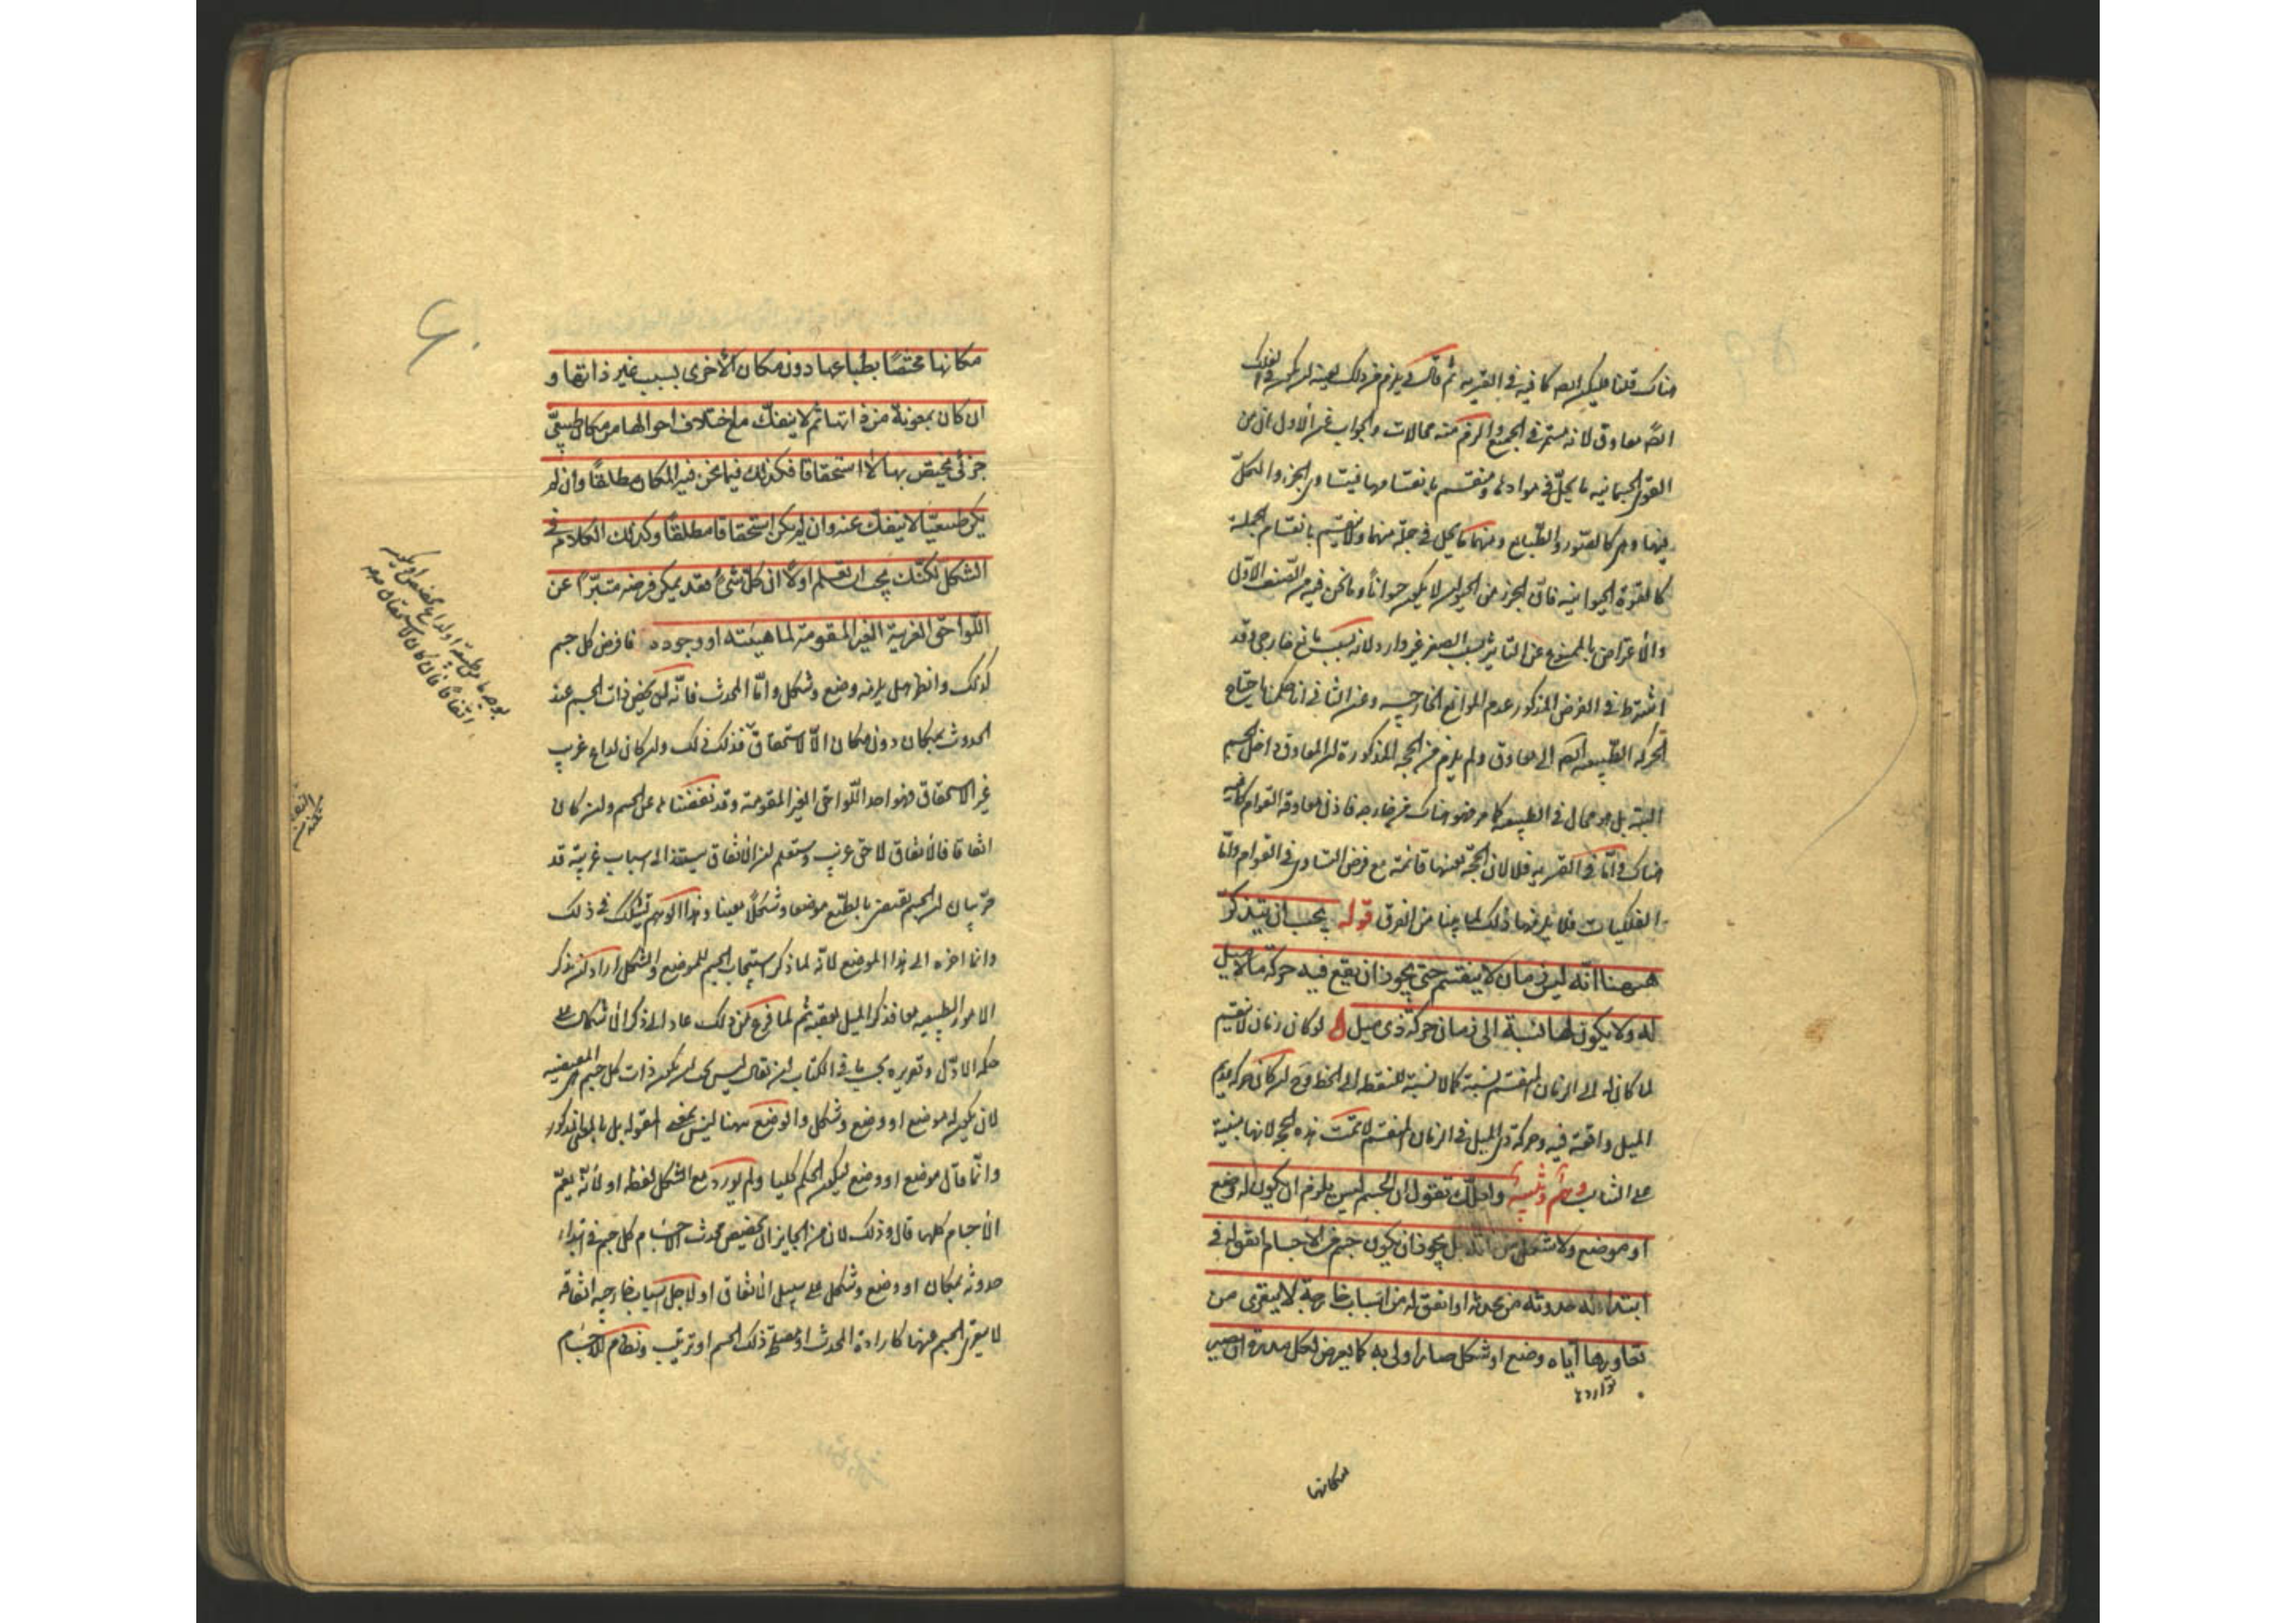 هناك قلنا فليكن الطبيعة كافية في القسرية ثم قال في يلزم من ذلك بعينه ان يكون في الفلك
ايضا معاوق لانه مستمر في الجميع والزم منه محالات والجواب عن الاول ان من
القوى الجسمانية ما يحلّ في موادها ومنقسم بانقسامها فيتساوى الجزء والكلّ
فيها وهي كالصور والطبايع ومنها ما يحل في جملة منها ولا ينقسم بانقسام الجملة
كالقوة الحيوانية فان الجزء من الحيوان لا يكون حيوانا وما نحن فيه من الصنف الاول
والاعتراض بالممنوع عن التأثير بسبب الصغر غير وارد لانه بسبب مانع خارجي وقد
اشترط في الفرض المذكور عدم الموانع الخارجية وعن الثاني انا حكمنا باحتياج
الحركة الطبيعية ايضا الى معاوق ولم يلزم من الحجة المذكورة ان المعاوق داخل الجسم
البتة بل هو محال في الطبيعية كما مر فهو هناك من خارج فاذن معاوقة القوام كافية
هناك وامّا في القسرية فلا لان الحجة بعينها قائمة مع فرض التساوى في القوام وامّا
الفلكيات فلا يلزمها ذلك لما بينا من الفرق قوله يجب ان تتذكر
ههنا انّه ليس زمان لا ينقسم حتى يجوز ان يقع فيه حركة ما لا ميل
له ولا يكون لها نسبة الى زمان حركة ذى ميل لو كان زمان لا ينقسم
لما كان له الى الزمان المنقسم نسبة كما لا نسبة للنقطة الى الخط وح ان كان حركة عديم
الميل واقعة فيه وحركة ذى الميل في الزمان المنقسم لا تمت هذه الحجة لانها مبنية
على التناسب وهم وتنبيه ولعلّك تقول ان الجسم ليس يلزم ان يكون له وضع
او موضع ولا شكل من ذاته بل يجوز ان يكون جسم من الاجسام اتفق له في
ابتداء حدوثه من محدثه او اتفق له من اسباب خارجة لا يتعرّى من
تعاورها ايّاه وضع او شكل صار اولى به كما يعرض لكل مدرة ان يصير
تواردها
مكانها
مكانها مختصًا بطباعها دون مكان الأخرى بسبب غير ذاتها و
ان كان بمعونة من ذاتها ثم لا ينفكّ مع اختلاف احوالها من مكان طبيعىّ
جزئى يختص بها لا استحقاقا فكذلك فيما نحن فيه المكان مطلقًا وان لم
يكن طبيعيّا لا ينفكّ عنه وان لم يكن استحقاقا مطلقًا وكذلك الكلام في
الشكل لكنّك يجب ان تعلم اولًا ان كلّ شئ فقد يمكن فرضه متبرّأ عن
اللّواحق الغريبة الغير المقومة لماهيته او وجوده فافرض كل جسم
كذلك وانظر هل يلزمه وضع وشكل وامّا المحدث فانّه لن يخص ذات الجسم عند
الحدوث بمكان دون مكان الّا لاستحقاق فذلك ذلك وان كان لداع غريب
غير الاستحقاق فهو احد اللّواحق الغير المقومة وقد نفضناها عن الجسم وان كان
اتفاقا فالاتفاق لاحق غريب وستعلم ان الاتفاق يستند الى اسباب غريبة قد
مرّ بيان ان الجسم يقتضى بالطبع موضعا وشكلا معينا وهذا الوهم تشكك في ذلك
وانما اخره الى هذا الموضع لانه لما ذكر استيجاب الجسم للموضع والشكل اراد ان يذكر
الامور الطبيعية معا فذكر الميل بعقبه ثم لما فرغ من ذلك عاد الى ذكر الاشكال على
حكمه الاوّل وتقريره بحسب ما في الكتاب ان يقال ليس يجب ان يكون ذات كل جسم هي المقتضية
لان يكون له موضع او وضع وشكل والوضع ههنا ليس بمعنى المقولة بل بالمعنى المذكور
وانّما قال موضع او وضع ليكون الحكم كليا ولم يورد مع الشكل لفظة او لانّه يعمّ
الاجسام كلها قال وذلك لان من الجايز ان يخصّص محدث الاجسام كل جسم في ابتداء
حدوثه بمكان او وضع وشكل على سبيل الاتفاق او لاجل اسباب خارجية اتفاقية
لا يتعرى الجسم عنها كارادة المحدث او مصلحة ذلك الجسم او ترتيب ونظام للاجسام